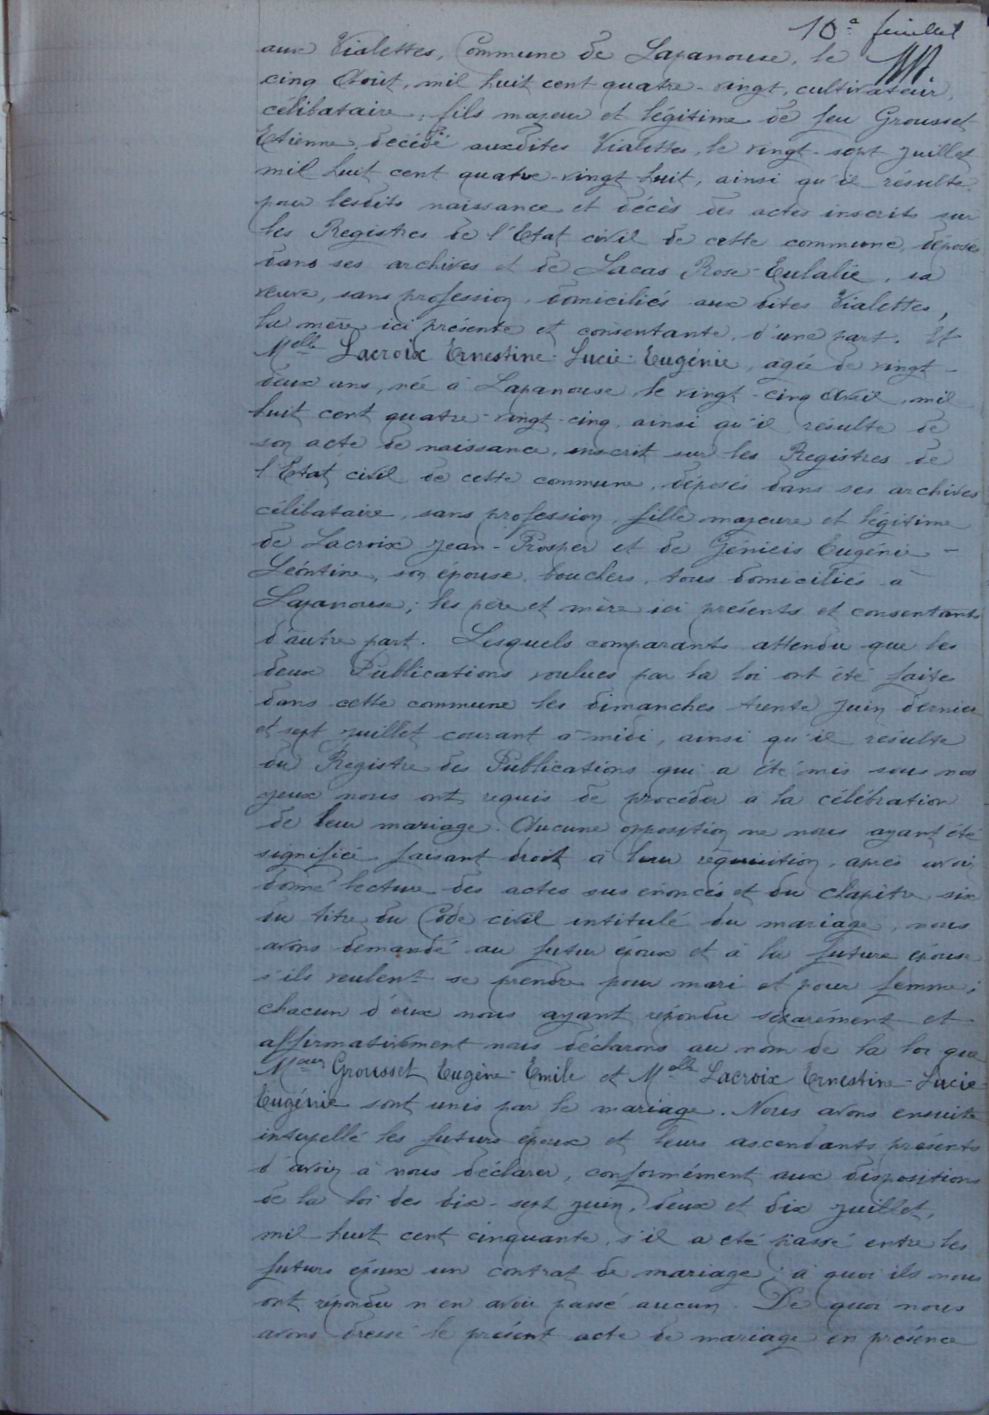 10e feuillet
aux Vialettes, Commune de Lapanouse, le
cinq Août, mil huit cent quatre-vingt, cultivateur,
célibataire; fils majeur et légitime de feu Grousset
Etienne, décédé auxdites Vialettes, le vingt-sept Juillet
mil huit cent quatre-vingt huit, ainsi qu'il résulte
pour lesdits naissance et décès des actes inscrits sur
les Registres de l'Etat civil de cette commune, déposés
dans ses archives et de Lacas Rose-Eulalie, sa
veuve, sans profession, domiciliés aux dites Vialettes,
la mère ici présente et consentante, d'une part. Et
Melle Lacroix Ernestine-Lucie-Eugénie, agée de vingt-
deux ans, née à Lapanouse, le vingt-cinq Avril, mil
huit cent quatre-vingt-cinq, ainsi qu'il résulte de
son acte de naissance, inscrit sur les Registres de
l'Etat civil de cette commune, déposés dans ses archives
célibataire, sans profession, fille majeure et légitime
de Lacroix Jean-Prosper et de Génieis Eugénie-
Léontine, son épouse, bouchers, tous domiciliés à
Lapanouse; les père et mère ici présents et consentants
d'autre part. Lesquels comparants attendu que les
deux Publications voulues par la loi ont été faites
dans cette commune les dimanches trente Juin dernier
et sept Juillet courant à midi, ainsi qu'il résulte
du Registre des Publications qui a été mis sous nos
yeux nous ont requis de procéder à la célébration
de leur mariage. Aucune opposition ne nous ayant été
signifiée faisant droit à leur réquisition, après avoir
donné lecture des actes sus énoncés et du chapitre six
du titre du Code civil intitulé du mariage, nous
avons demandé au futur époux et à la future épouse
s'ils veulent se prendre pour mari et pour femme;
chacun d'eux nous ayant répondu séparément et
affirmativement nous déclarons au nom de la loi que
Mieur Grousset Eugène-Emile et Melle Lacroix Ernestine-Lucie
Eugénie sont unis par le mariage. Nous avons ensuite
interpellé les futurs époux et leurs ascendants présents
d'avoir à nous déclarer, conformément aux dispositions
de la loi des dix-sept juin, deux et dix Juillet,
mil huit cent cinquante, s'il a été passé entre les
futurs époux un contrat de mariage; à quoi ils nous
ont répondu n'en avoir passé aucun. De quoi nous
avons dressé le présent acte de mariage en présence